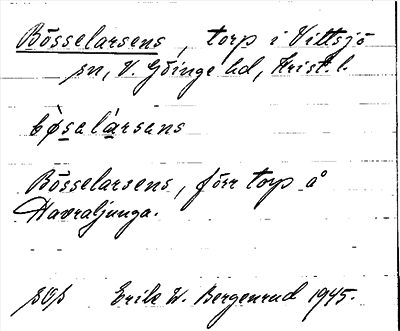 Bösselarsens, torp i Vittsjö
sn, V. Göinge hd, Krist. l.
bø̀salársans
Bösselarsens, förr torp å
Havraljunga.
Erik W. Bergenrud 1945.